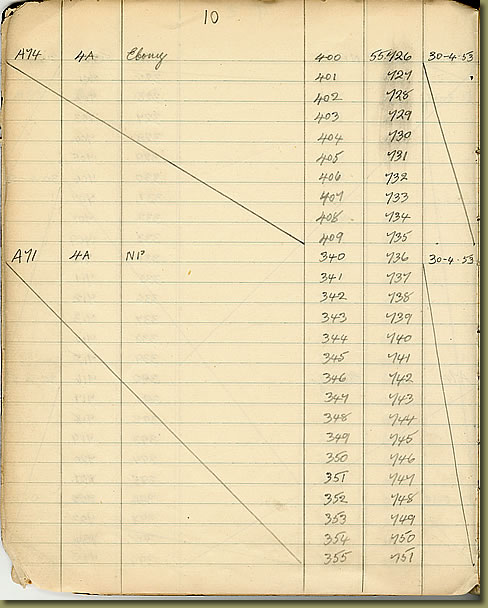 10
A74 4A Ebony 400 55726 30-4-53
401 727
402 728
403 729
404 730
405 731
406 732
407 733
408 734
409 735
A71 4A NP 340 736 30-4-53
341 737
342 738
343 739
344 740
345 741
346 742
347 743
348 744
349 745
350 746
351 747
352 748
353 749
354 750
355 751